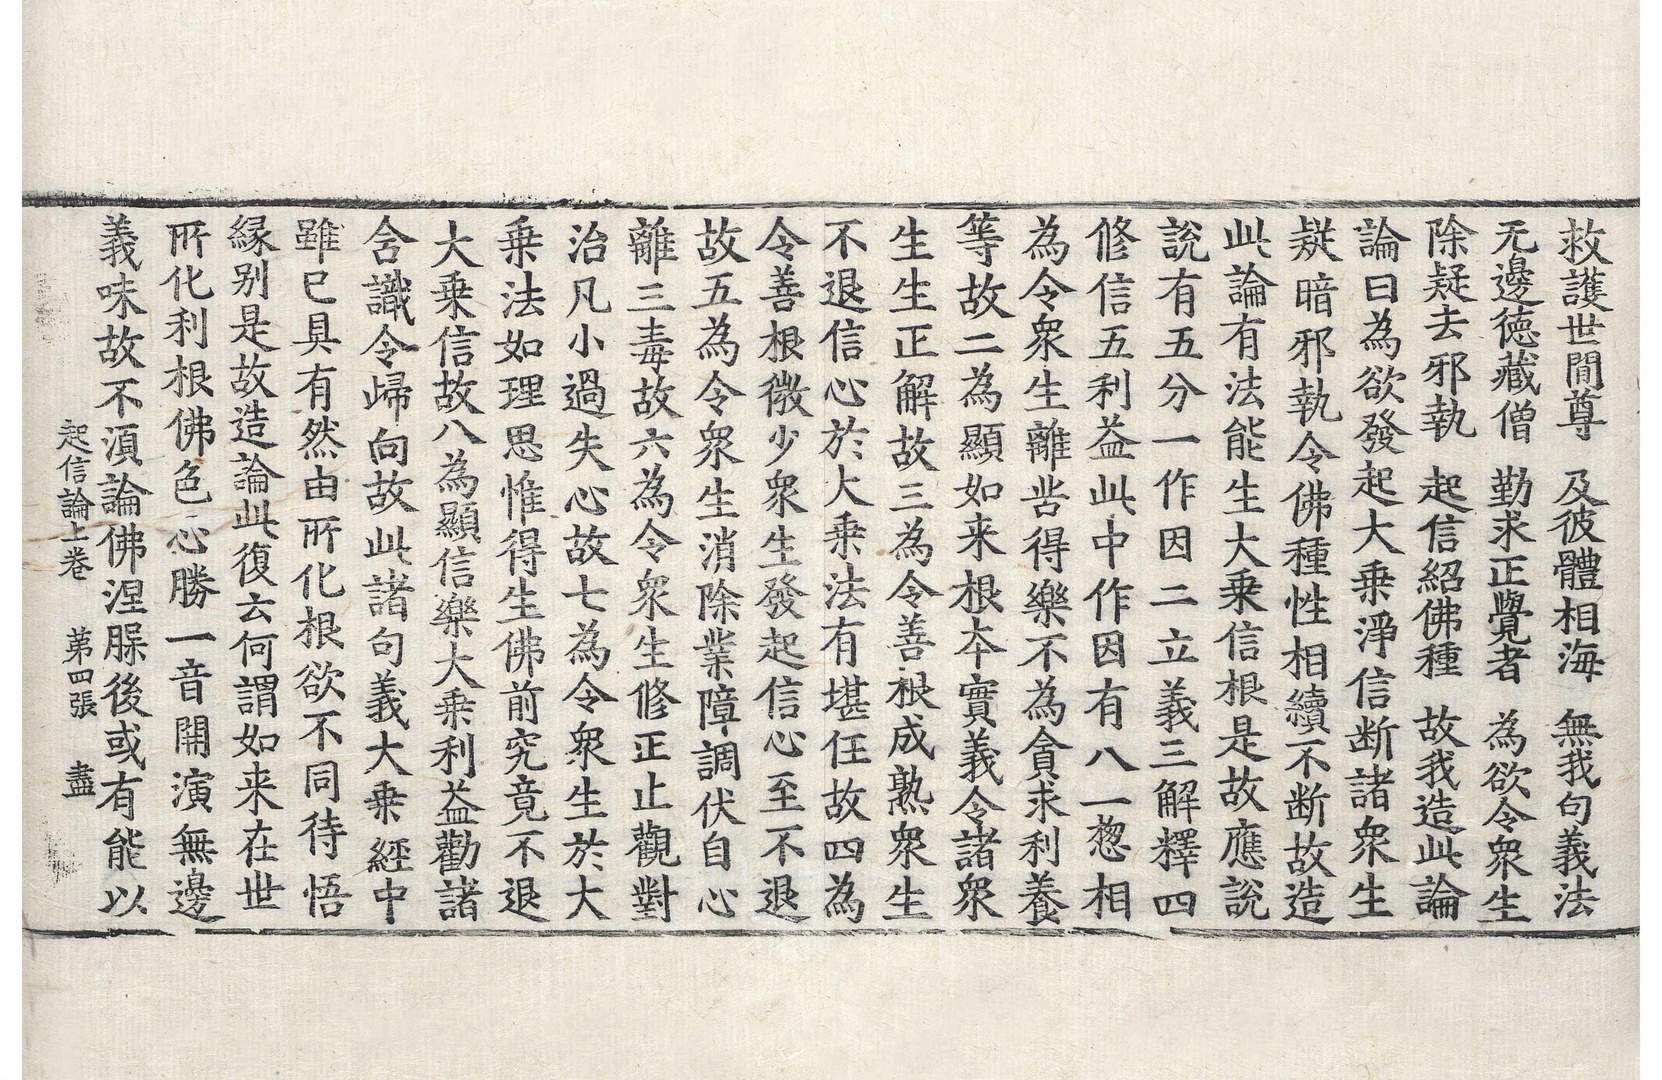 救護世間尊 及彼體相海 無我句義法
无邊德藏僧 勤求正覺者 為欲令衆生
除疑去邪執 起信紹佛種 故我造此論
論曰為欲發起大乗淨信断諸衆生
疑暗邪執令佛種性相續不断故造
此論有法能生大乗信根是故應說
說有五分一作因二立義三解釋四
修信五利益此中作因有八一惣相
為令衆生離苦得樂不為貪求利養
等故二為顯如来根夲實義令諸衆
生生正解故三為令善根成熟衆生
不退信心於大乗法有堪任故四為
令善根微少衆生發起信心至不退
故五為令衆生消除業障調伏自心
離三毒故六為令衆生修正止觀對
治凡小過失心故七為令衆生於大
乗法如理思惟得生佛前究竟不退
大乗信故八為顯信樂大乗利益勸諸
含識令歸向故此諸句義大乗經中
雖已具有然由所化根欲不同待悟
緣別是故造論此復云何謂如来在世
所化利根佛色心勝一音開演無邊
義味故不湏論佛涅槃後或有能以
起信論上卷 第四張 盡